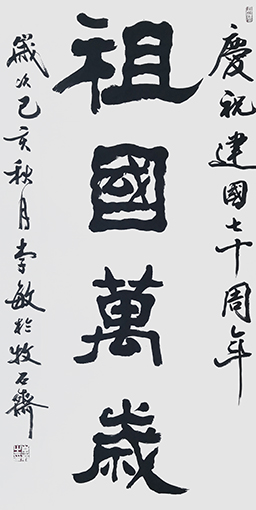 慶祝建國七十周年
祖國萬歲
歲次己亥秋月李敏於牧石齋